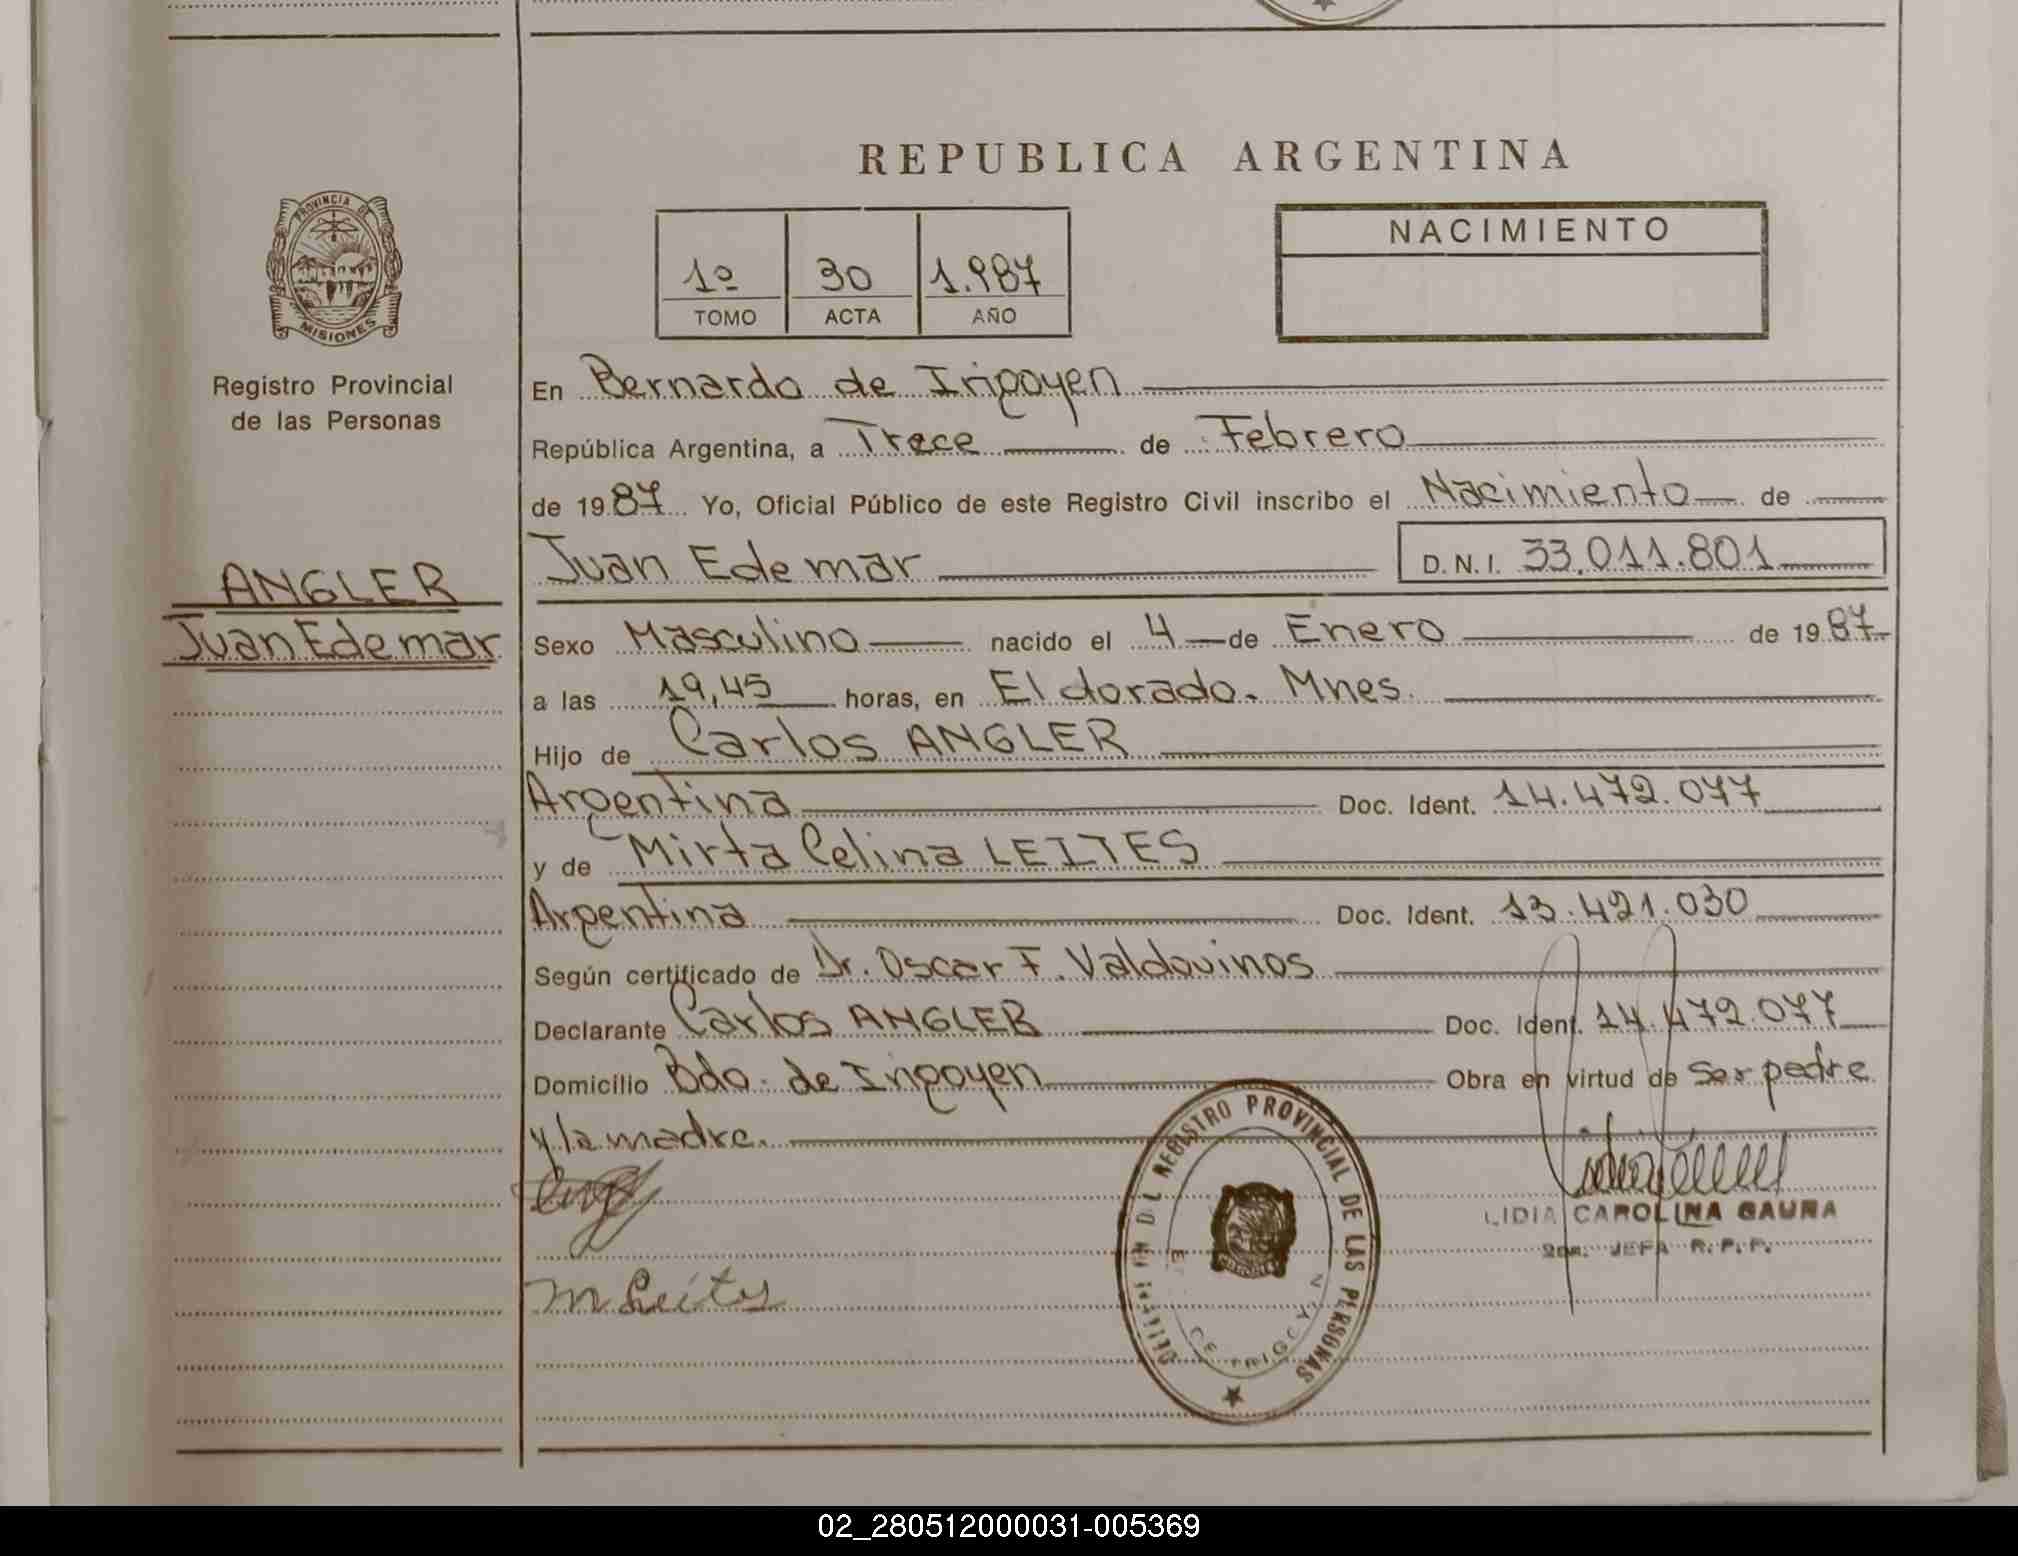 REPUBLICA ARGENTINA
PROVINCIA DE
MISIONES
Registro Provincial
de las Personas
1º 30 1.987
TOMO ACTA AÑO
NACIMIENTO
En Bernardo de Irigoyen
República Argentina, a Trece de Febrero
de 1987 Yo, Oficial Público de este Registro Civil inscribo el Nacimiento de
Juan Edemar D.N.I. 33.011.801
ANGLER
Juan Edemar
Sexo Masculino nacido el 4 de Enero de 1987
a las 19,45 horas, en Eldorado. Mnes.
Hijo de Carlos ANGLER
Argentina Doc. Ident. 14.472.077
y de Mirta Celina LEITES
Argentina Doc. Ident. 13.421.030
Según certificado de Dr. Oscar F. Valdovinos
Declarante Carlos ANGLER Doc. Ident. 14.472.077
Domicilio Bdo. de Irigoyen Obra en virtud de ser padre
y la madre.
M Leites
REGISTRO PROVINCIAL DE LAS PERSONAS
LIDIA CAROLINA GAUNA
JEFA R.P.P.
02_280512000031-005369